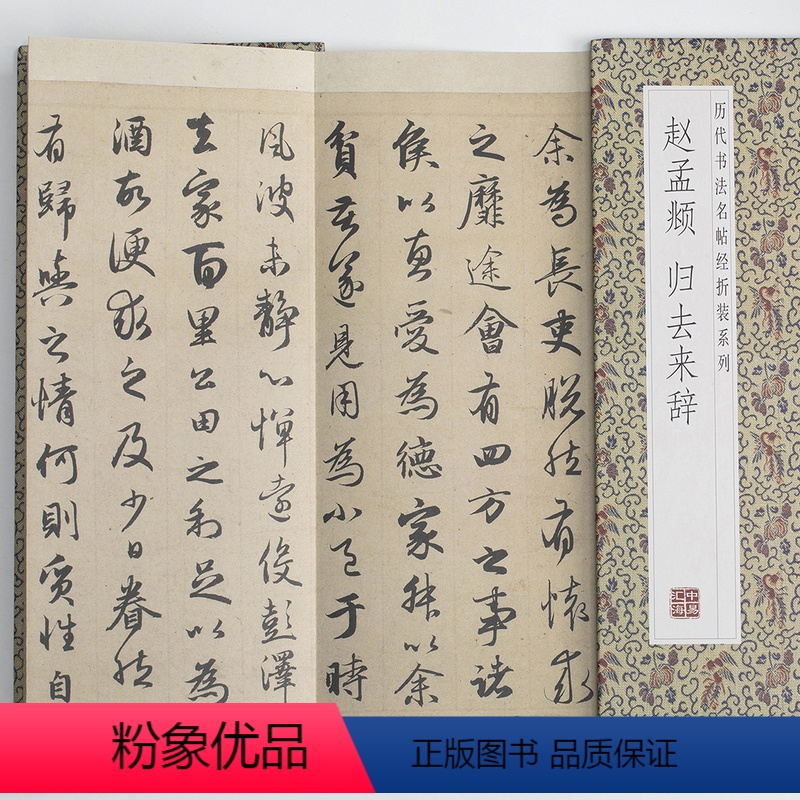 历代书法名帖经折装系列
赵孟𫖯 归去来辞
中易
汇海
余為長吏脱然有懷求
之靡途會有四方之事諸
侯以惠愛為德家叔以余
貧苦遂見用為小邑于時
風波未静心憚遠役彭澤
去家百里公田之利足以為
酒故便求之及少日眷然
有歸與之情何則質性自
粉象优品
正版图书 品质保证